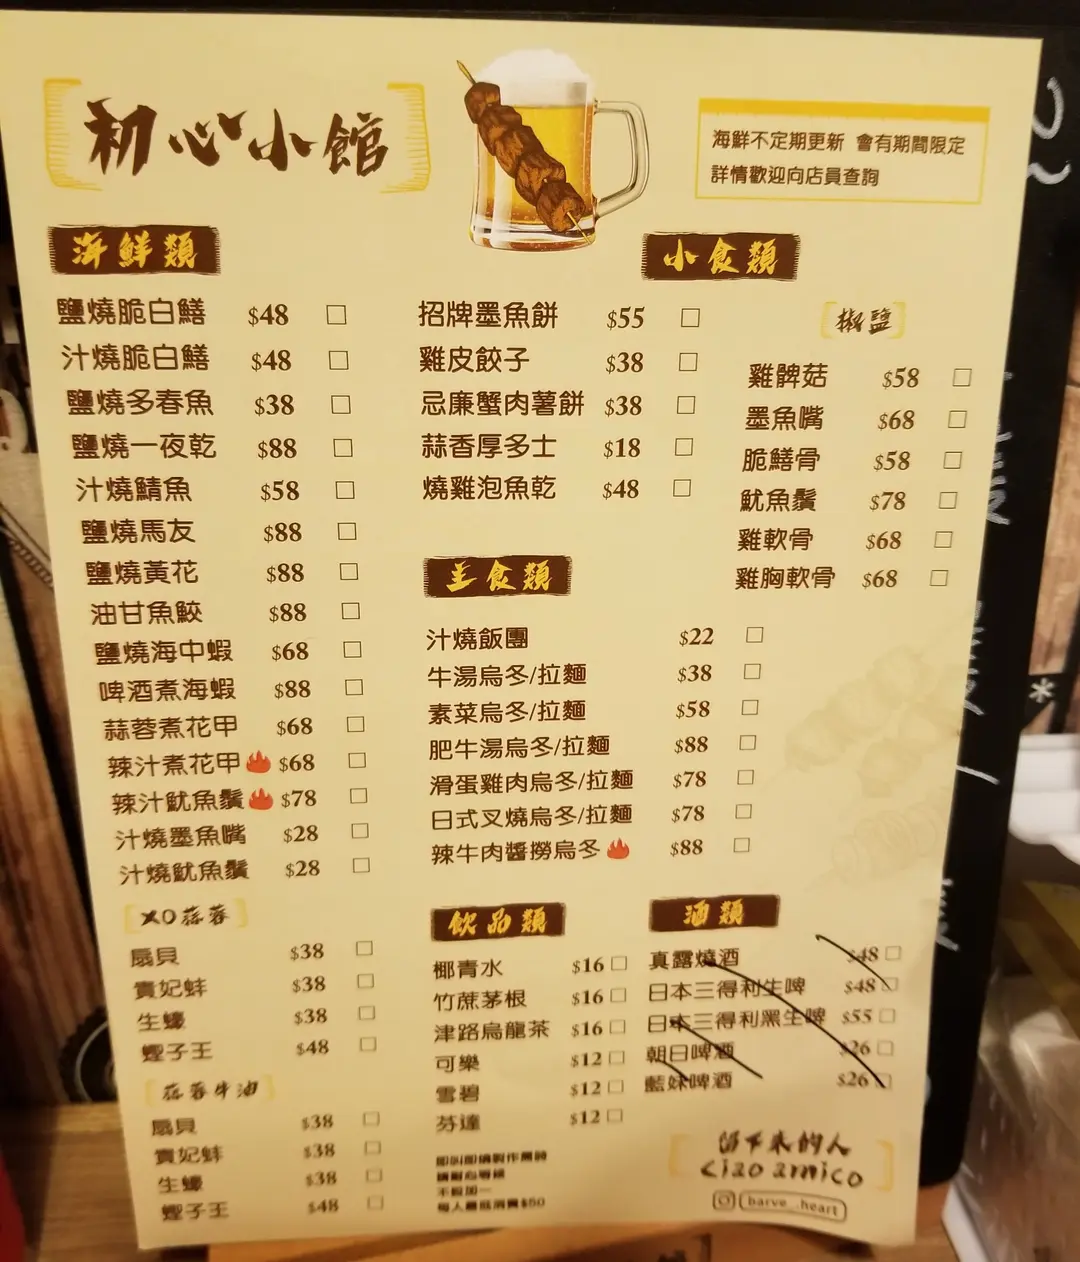 初心小館
海鮮不定期更新 會有期間限定
詳情歡迎向店員查詢
海鮮類
鹽燒脆白鱔 $48 □
汁燒脆白鱔 $48 □
鹽燒多春魚 $38 □
鹽燒一夜乾 $88 □
汁燒鯖魚 $58 □
鹽燒馬友 $88 □
鹽燒黃花 $88 □
油甘魚鮫 $88 □
鹽燒海中蝦 $68 □
啤酒煮海蝦 $88 □
蒜蓉煮花甲 $68 □
辣汁煮花甲 $68 □
辣汁魷魚鬚 $78 □
汁燒墨魚嘴 $28 □
汁燒魷魚鬚 $28 □
XO蒜蓉
扇貝 $38 □
貴妃蚌 $38 □
生蠔 $38 □
蟶子王 $48 □
蒜蓉牛油
扇貝 $38 □
貴妃蚌 $38 □
生蠔 $38 □
蟶子王 $48 □
小食類
招牌墨魚餅 $55 □
雞皮餃子 $38 □
忌廉蟹肉薯餅 $38 □
蒜香厚多士 $18 □
燒雞泡魚乾 $48 □
椒鹽
雞髀菇 $58 □
墨魚嘴 $68 □
脆鱔骨 $58 □
魷魚鬚 $78 □
雞軟骨 $68 □
雞胸軟骨 $68 □
主食類
汁燒飯團 $22 □
牛湯烏冬/拉麵 $38 □
素菜烏冬/拉麵 $58 □
肥牛湯烏冬/拉麵 $88 □
滑蛋雞肉烏冬/拉麵 $78 □
日式叉燒烏冬/拉麵 $78 □
辣牛肉醬撈烏冬 $88 □
飲品類
椰青水 $16 □
竹蔗茅根 $16 □
津路烏龍茶 $16 □
可樂 $12 □
雪碧 $12 □
芬達 $12 □
即叫即燒製作需時
請耐心等候
不設加一
每人最低消費$50
酒類
真露燒酒 $48 □
日本三得利生啤 $48 □
日本三得利黑生啤 $55 □
朝日啤酒 $26 □
藍妹啤酒 $26 □
留下來的人
ciao amico
barve_.heart